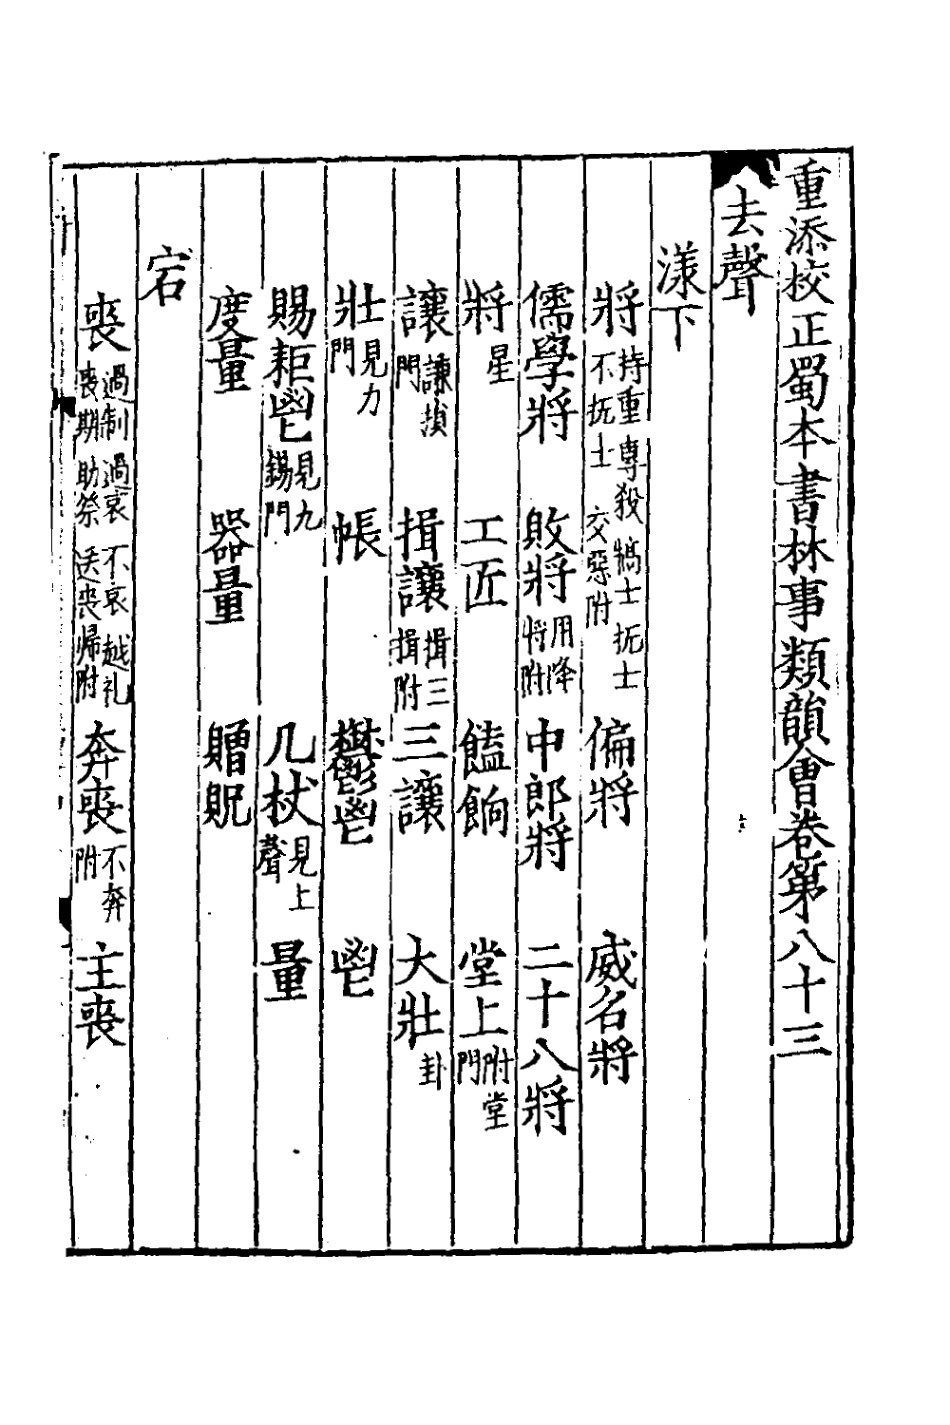 重添校正蜀本書林事類韻會卷第八十三
去聲
漾下
將 持重 專殺 犒士 抚士 不抚士 交惡附 偏將 威名將
儒學將 敗將 用降將附 中郎將 二十八將
將 星 工匠 饁餉 堂上 附堂門
讓 謙 門 揖讓 揖三揖附 三讓 大壯 卦
壯 見力門 帳 鬱鬯 鬯
賜秬鬯 見九錫門 几杖 見上聲 量
度量 器量 贈貺
宕
喪 過制 過哀 不哀 越礼 喪期 助祭 送丧 帰附 奔喪 不奔附 主喪